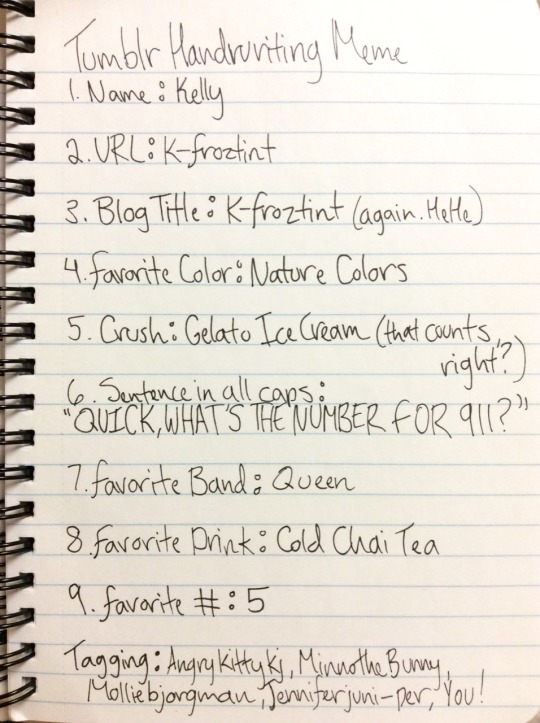 Tumblr Handwriting Meme
1. Name: Kelly
2. URL: K-froztint
3. Blog Title: K-froztint (again. HeHe)
4. favorite Color: Nature Colors
5. Crush: Gelato Ice Cream (that counts,
right?)
6. Sentence in all caps:
"QUICK, WHAT'S THE NUMBER FOR 911?"
7. favorite Band: Queen
8. Favorite Drink: Cold Chai Tea
9. favorite #: 5
Tagging: AngryKittyKj, MinnotheBunny,
Molliebjorgman, Jenniferjuni-per, You!